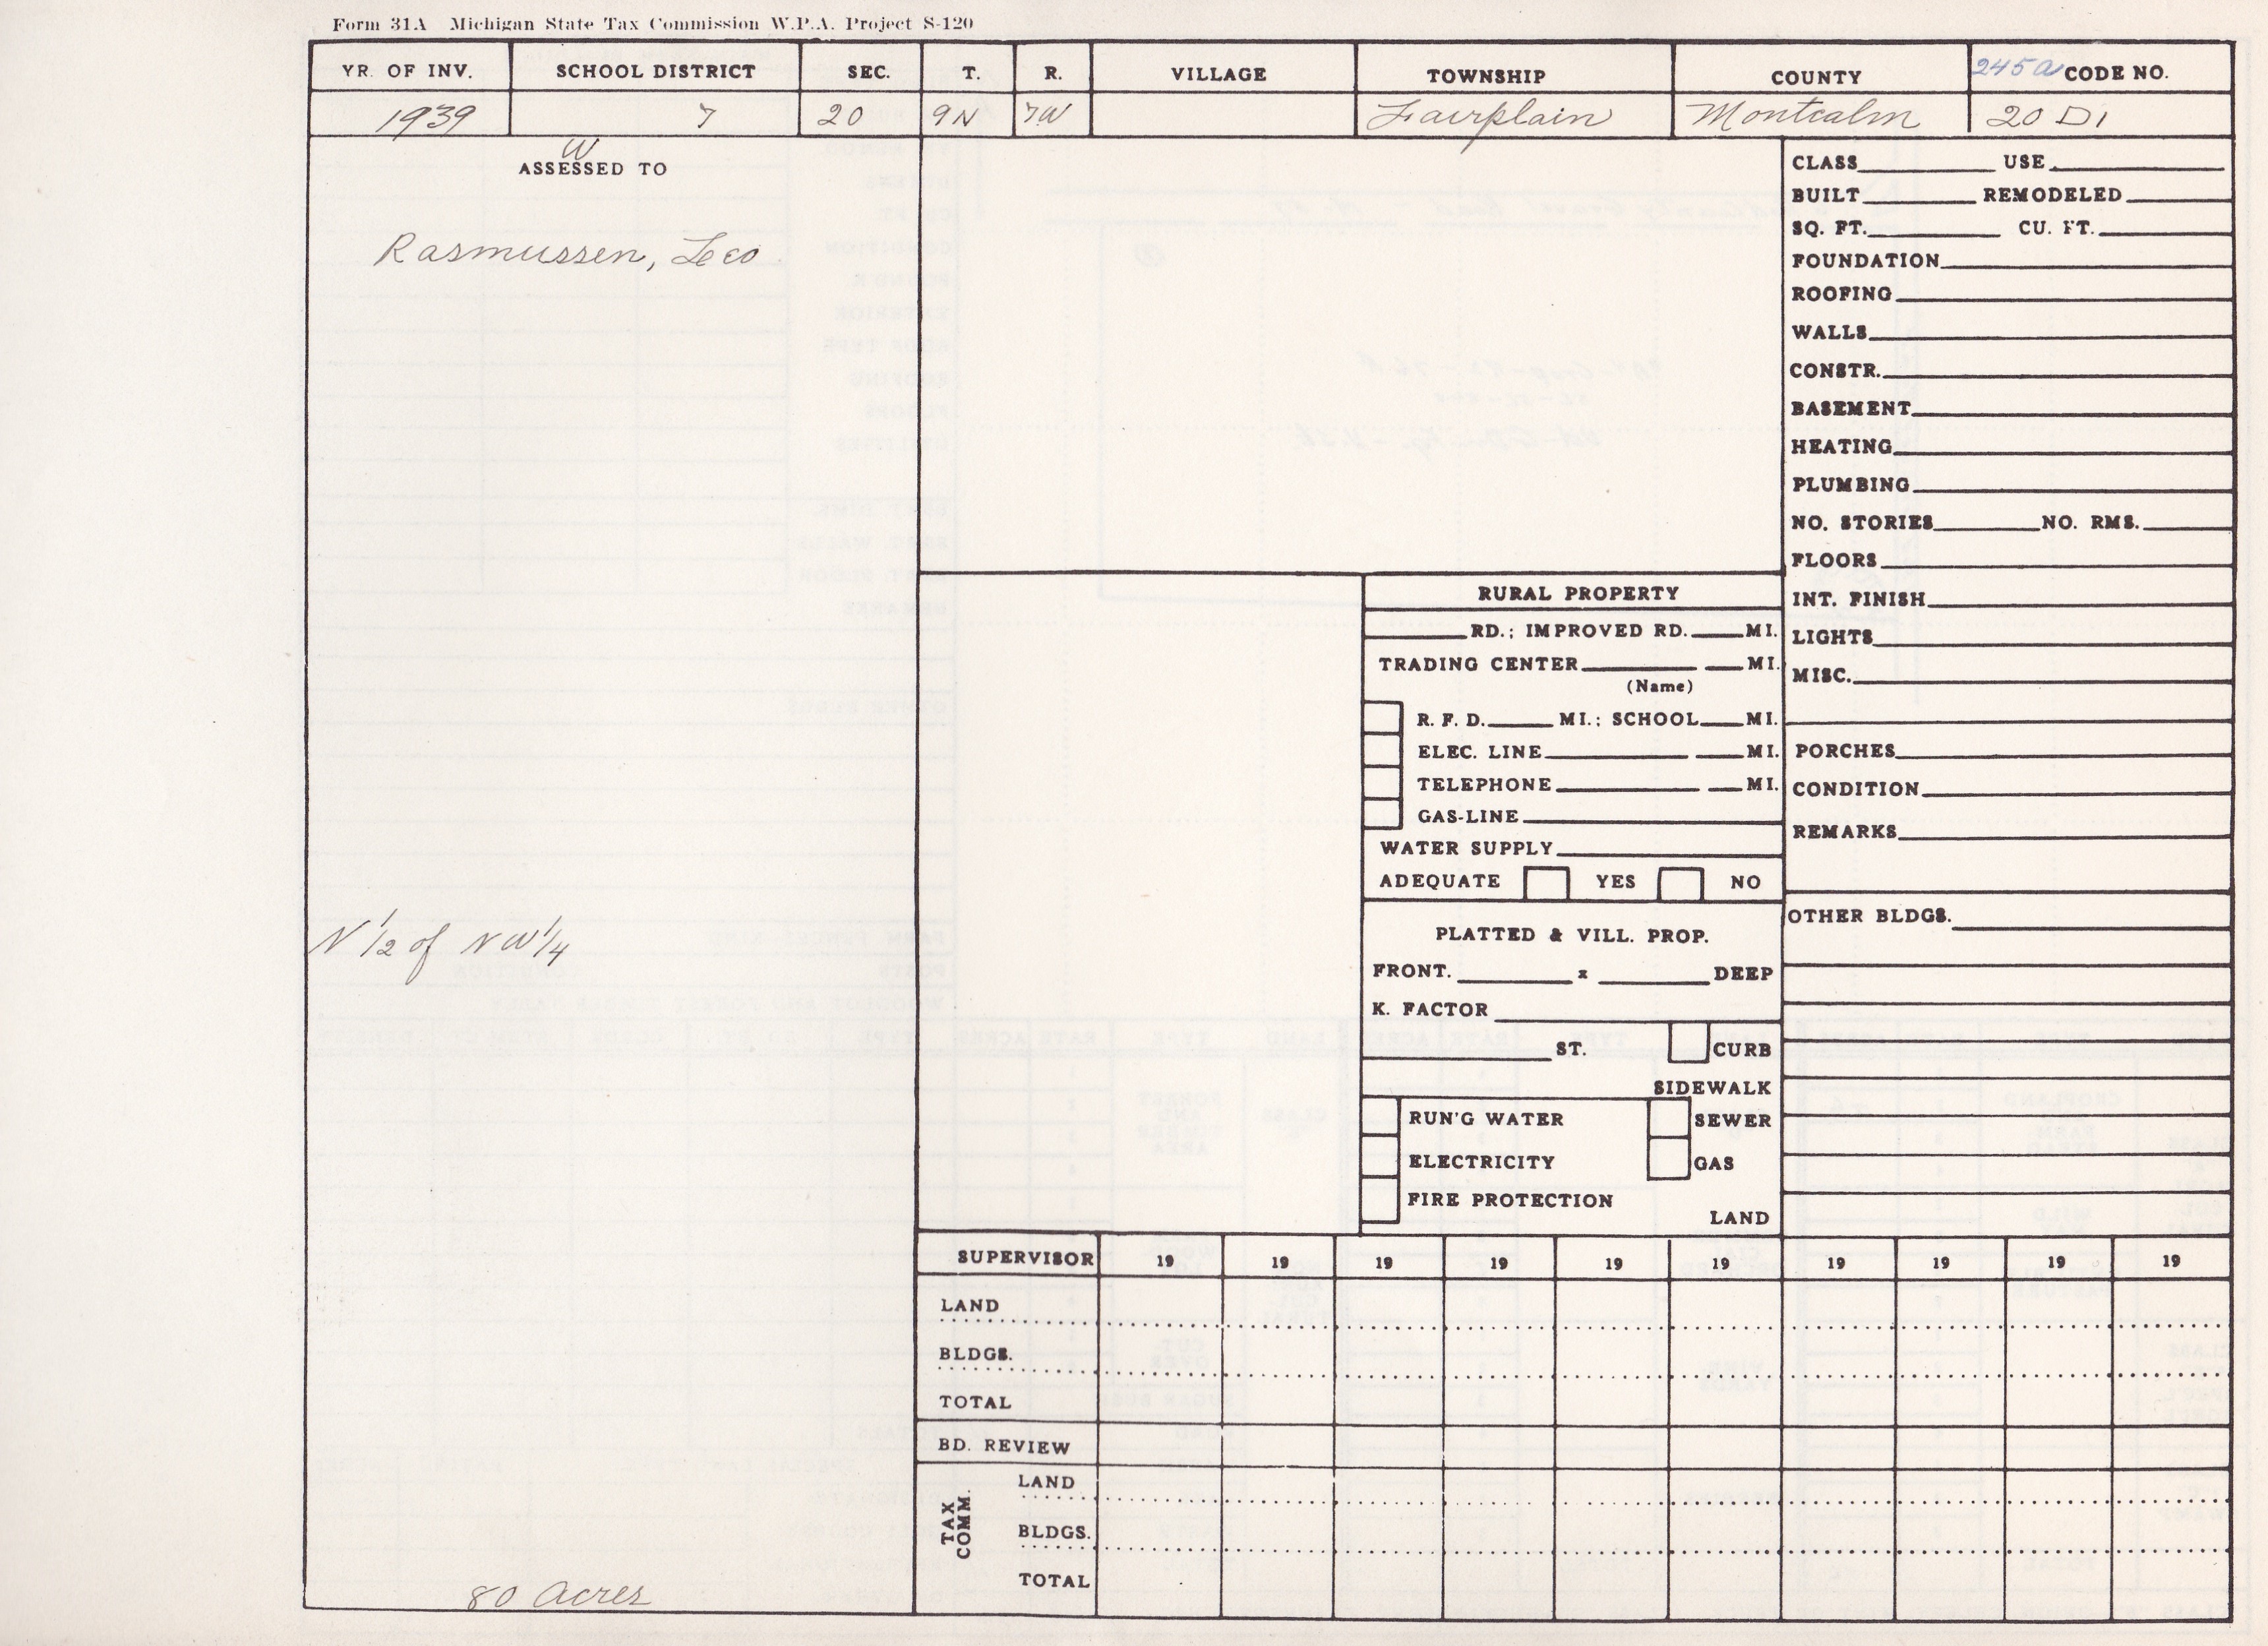 Form 31A Michigan State Tax Commission W.P.A. Project S-120
YR. OF INV. SCHOOL DISTRICT SEC. T. R. VILLAGE TOWNSHIP COUNTY 245a CODE NO.
1939 7 20 9N 7W Fairplain Montcalm 20 D1
W
ASSESSED TO
Rasmussen, Leo
N 1/2 of NW 1/4
80 Acres
CLASS USE
BUILT REMODELED
SQ. FT. CU. FT.
FOUNDATION
ROOFING
WALLS
CONSTR.
BASEMENT
HEATING
PLUMBING
NO. STORIES NO. RMS.
FLOORS
INT. FINISH
LIGHTS
MISC.
PORCHES
CONDITION
REMARKS
OTHER BLDGS.
RURAL PROPERTY
RD.; IMPROVED RD. MI.
TRADING CENTER MI.
(Name)
R. F. D. MI.; SCHOOL MI.
ELEC. LINE MI.
TELEPHONE MI.
GAS-LINE
WATER SUPPLY
ADEQUATE YES NO
PLATTED & VILL. PROP.
FRONT. x DEEP
K. FACTOR
ST. CURB
SIDEWALK
RUN'G WATER SEWER
ELECTRICITY GAS
FIRE PROTECTION
LAND
SUPERVISOR 19 19 19 19 19 19 19 19 19 19
LAND
BLDGS.
TOTAL
BD. REVIEW
TAX COMM.
LAND
BLDGS.
TOTAL